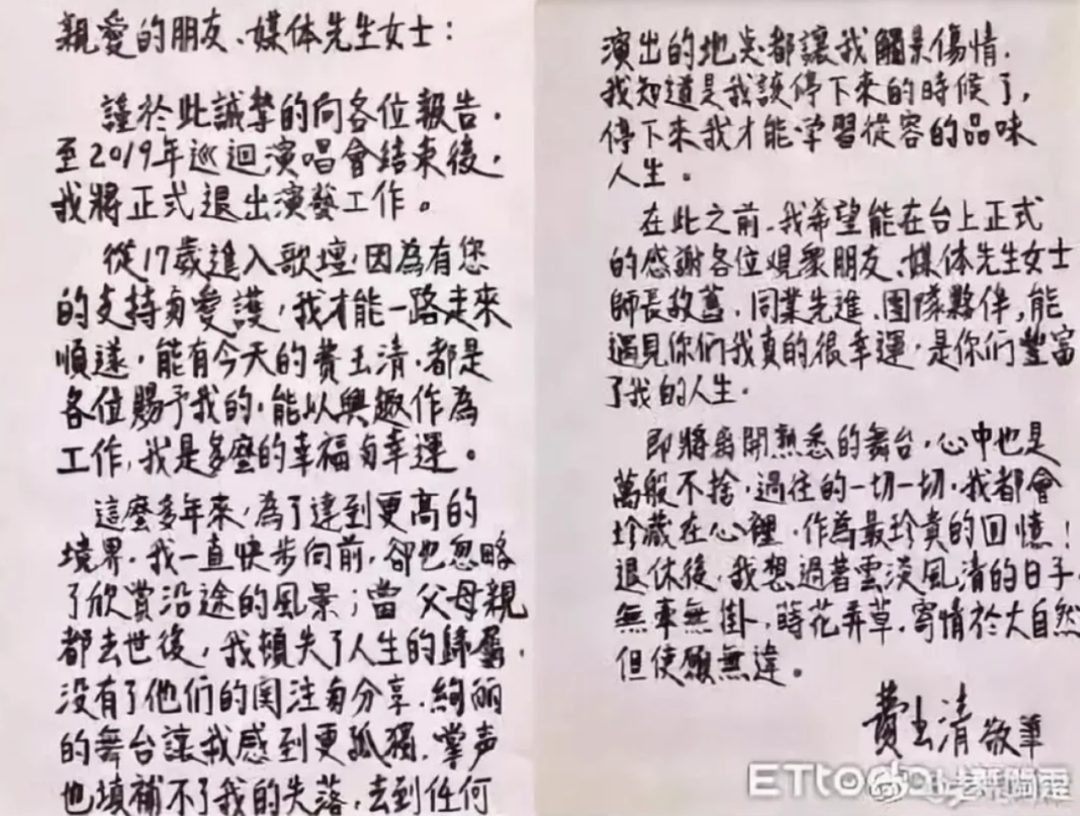 親愛的朋友、媒体先生女士：
謹於此誠摯的向各位報告，
至2019年巡迴演唱會結束後，
我將正式退出演藝工作。
從17歲進入歌壇，因為有您
的支持與愛護，我才能一路走來
順遂，能有今天的費玉清，都是
各位賜予我的，能以興趣作為
工作，我是多麼的幸福與幸運。
這麼多年來，為了達到更高的
境界，我一直快步向前，卻也忽略
了欣賞沿途的風景；當父母親
都去世後，我頓失了人生的歸屬，
沒有了他們的関注與分享，絢丽
的舞台讓我感到更孤獨，掌声
也填補不了我的失落，去到任何
演出的地点都讓我觸景傷情，
我知道是我該停下來的時候了，
停下來我才能学習從容的品味
人生。
在此之前，我希望能在台上正式
的感謝各位观眾朋友、媒体先生女士
師長故舊、同業先進、團隊夥伴，能
遇見你們我真的很幸運，是你們豐富
了我的人生。
即將离開熟悉的舞台，心中也是
萬般不捨，過往的一切一切，我都會
珍藏在心裡，作為最珍貴的回憶！
退休後，我想過著雲淡風清的日子，
無牽無掛，蒔花弄草，寄情於大自然
但使願無違。
費玉清 敬筆
ETtoday
新聞雲